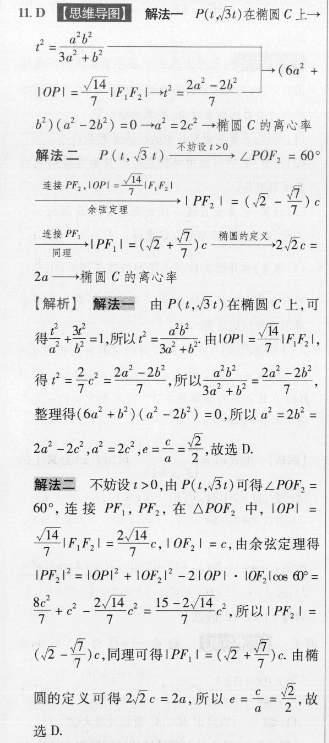 11. D 【思维导图】 解法一 P(t,√3t)在椭圆 C 上→
t² = a²b²/(3a² + b²)
|OP| = (√14/7)|F₁F₂|→t² = (2a² - 2b²)/7 →(6a² +
b²)(a² - 2b²) = 0→a² = 2c²→椭圆 C 的离心率
解法二 P(t,√3t) —不妨设 t>0→ ∠POF₂ = 60°
—连接 PF₂,|OP| = (√14/7)|F₁F₂| 余弦定理→|PF₂| = (√2 - √7/7)c
—连接 PF₁ 同理→|PF₁| = (√2 + √7/7)c —椭圆的定义→2√2c =
2a→椭圆 C 的离心率
【解析】 解法一 由 P(t,√3t)在椭圆 C 上,可
得t²/a² + 3t²/b² = 1,所以 t² = a²b²/(3a² + b²).由|OP| = (√14/7)|F₁F₂|,
得 t² = (2/7)c² = (2a² - 2b²)/7,所以 a²b²/(3a² + b²) = (2a² - 2b²)/7,
整理得(6a² + b²)(a² - 2b²) = 0,所以 a² = 2b² =
2a² - 2c²,a² = 2c²,e = c/a = √2/2,故选 D.
解法二 不妨设 t>0,由 P(t,√3t)可得∠POF₂ =
60°,连接 PF₁,PF₂,在 △POF₂ 中,|OP| =
(√14/7)|F₁F₂| = (2√14/7)c,|OF₂| = c,由余弦定理得
|PF₂|² = |OP|² + |OF₂|² - 2|OP|·|OF₂|cos 60° =
8c²/7 + c² - (2√14/7)c² = ((15 - 2√14)/7)c²,所以|PF₂| =
(√2 - √7/7)c,同理可得|PF₁| = (√2 + √7/7)c.由椭
圆的定义可得 2√2c = 2a,所以 e = c/a = √2/2,故
选 D.